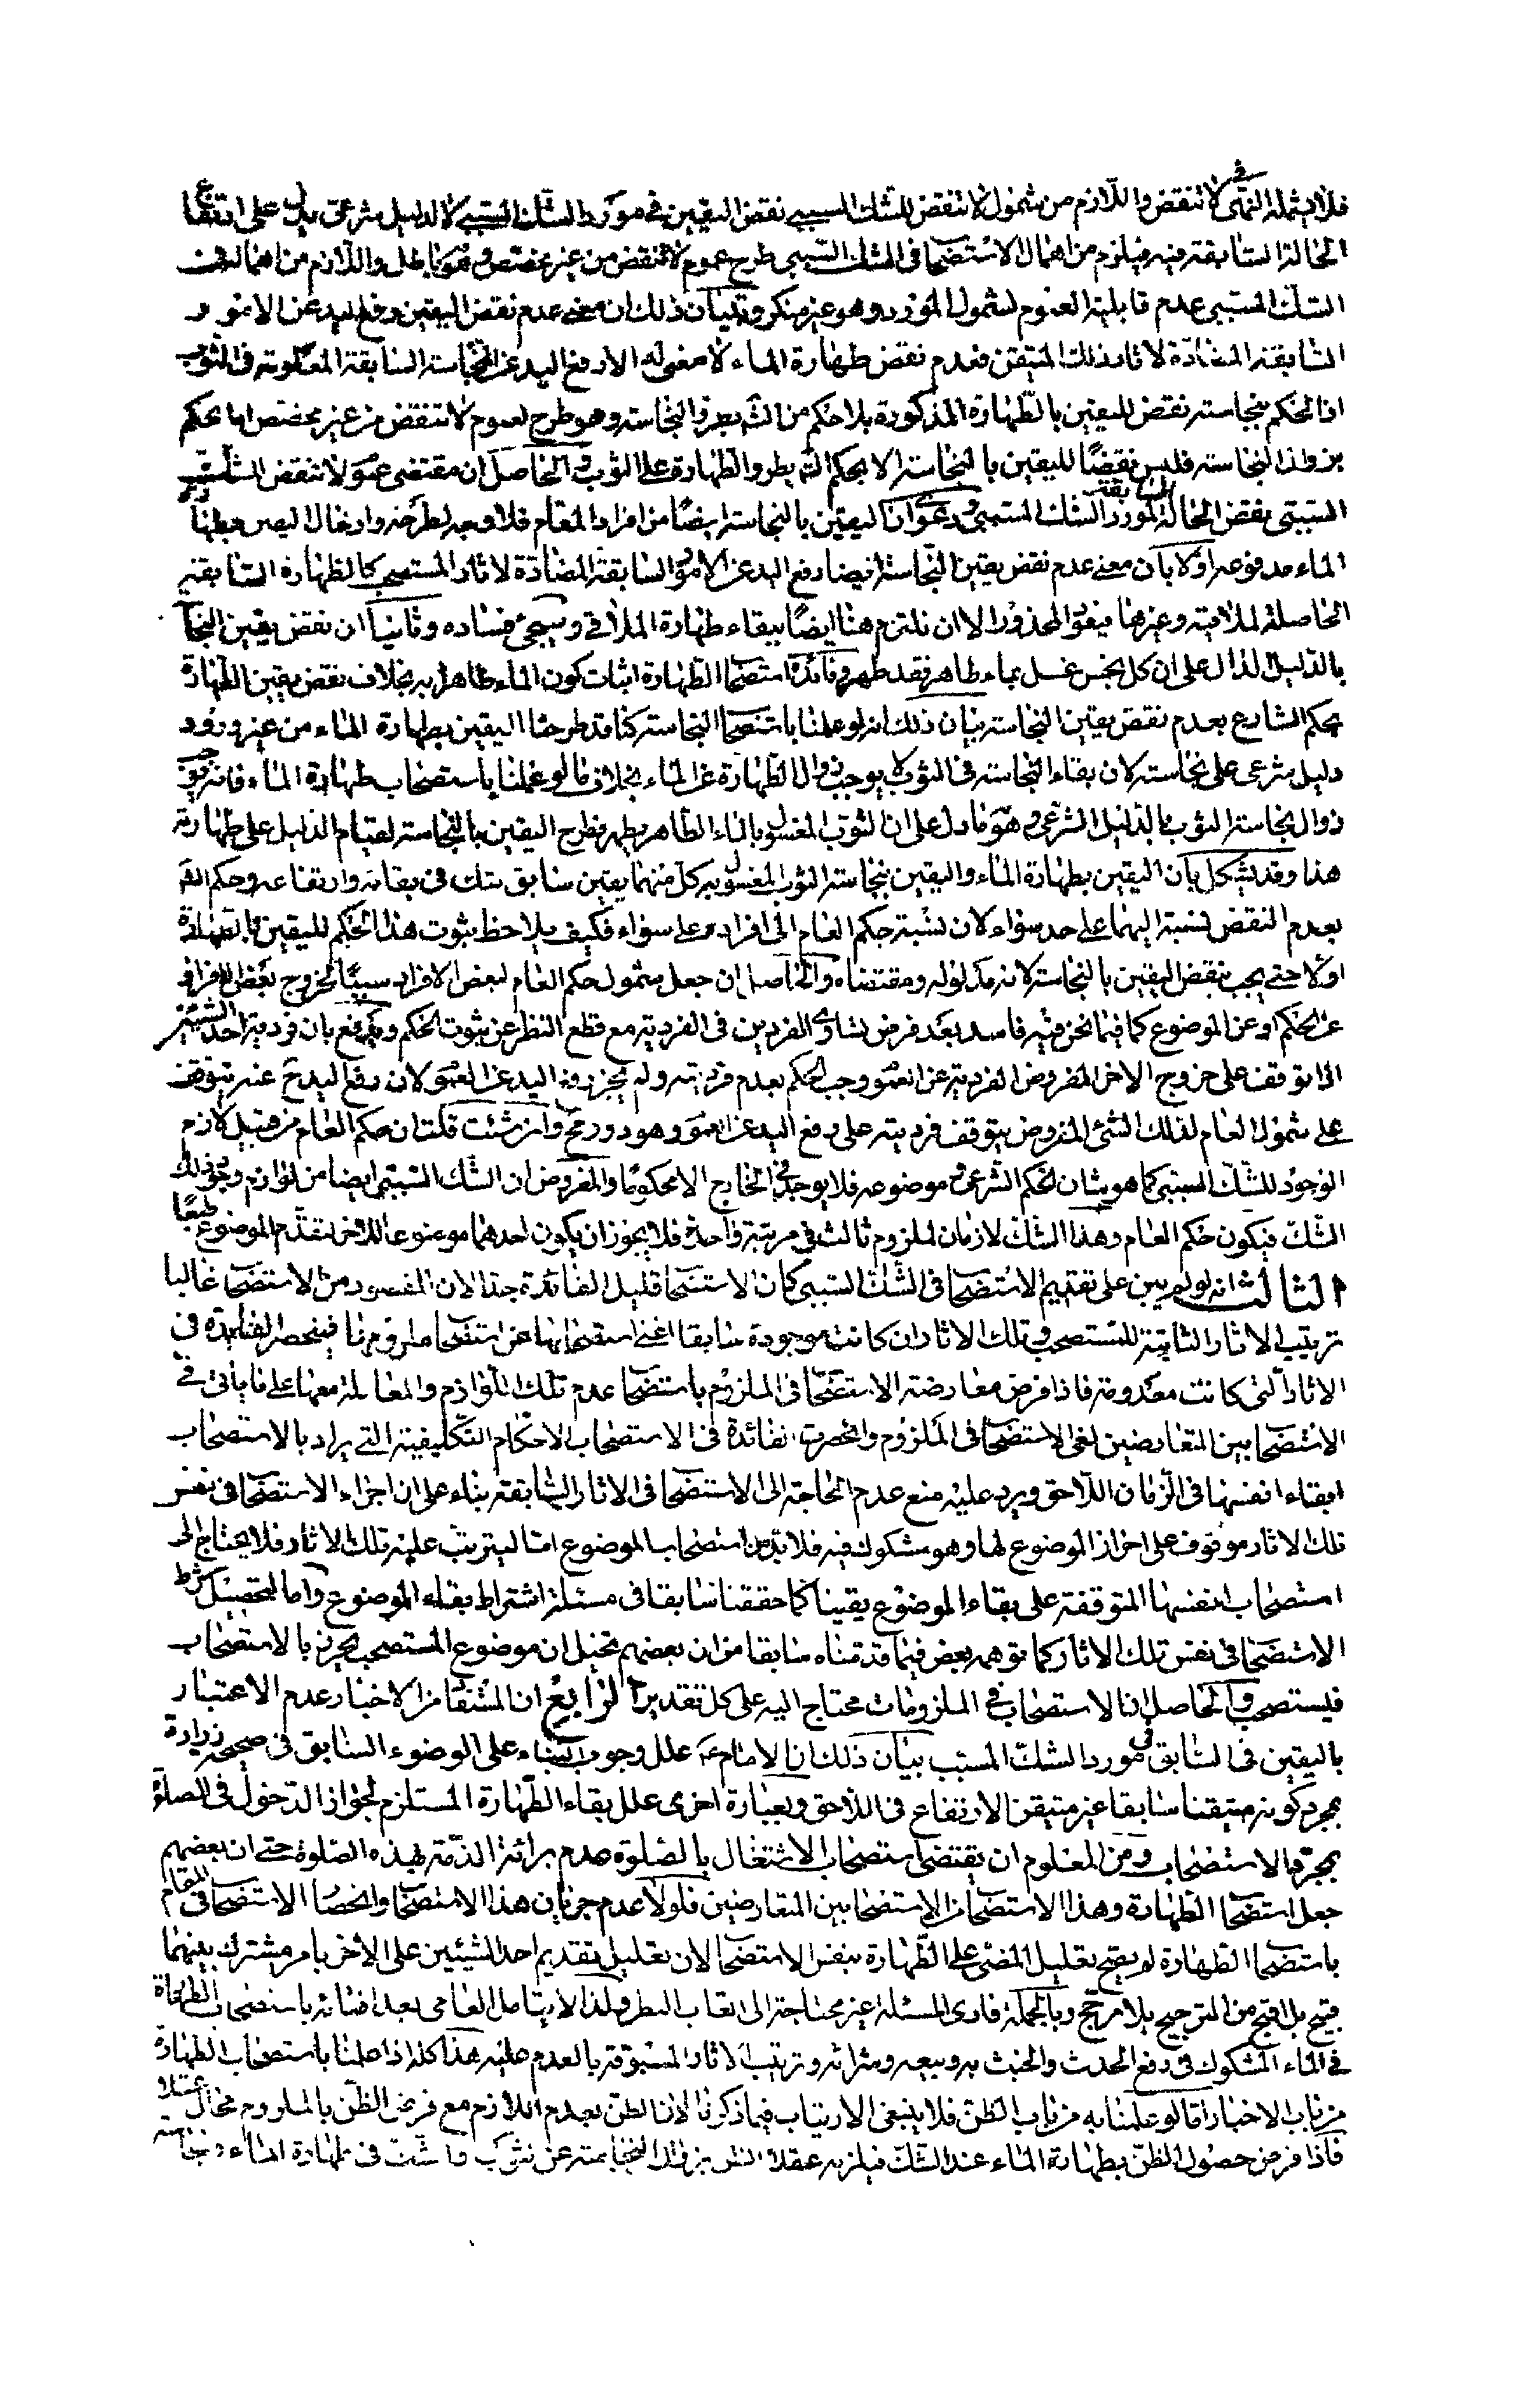 فلا يشمله النهى فى لا تنقض واللازم من شمول لا تنقض للشك السببى نقض اليقين فى مورد الشك المسببى لا لدليل شرعى يدل على ارتفاع
الحالة السابقة فيه فيلزم من اهمال الاستصحاب فى الشك السببى طرح عموم لا تنقض من غير مخصص وهو باطل واللازم من اهماله فى
الشك المسببى عدم قابلية العموم لشمول المورد وهو غير منكر وبيان ذلك ان معنى عدم نقض اليقين رفع اليد عن الامور
السابقة المضادة لاثار ذلك المتيقن فعدم نقض طهارة الماء لا معنى له الا رفع اليد عن النجاسة السابقة المعلومة فى الثوب
اذ الحكم بنجاسته نقض لليقين بالطهارة المذكورة بلا حكم من الش بطرو النجاسة وهو طرح لعموم لا تنقض من غير مخصص اما الحكم
بزوال النجاسة فليس نقضًا لليقين بالنجاسة الا بحكم الش بطرو الطهارة على الثوب والحاصل ان مقتضى عموم لا تنقض للشك
السببى نقض الحالة السابقة لمورد الشك المسببى ودعوى ان اليقين بالنجاسة ايضًا من افراد العام فلا وجه لطرحه وادخال اليقين بطهارة
الماء مدفوعة اولا بان معنى عدم نقض يقين النجاسة ايضا رفع اليد عن الامور السابقة المضادة لاثار المستصحب كالطهارة السابقة
الحاصلة لملاقيه وغيرها فيعود المحذور الا ان نلتزم هنا ايضًا ببقاء طهارة الملاقى وسيجئ فساده وثانيا ان نقض يقين النجاسة
بالدليل الدال على ان كل نجس غسل بماء طاهر فقد طهر وفائدة استصحاب الطهارة اثبات كون الماء طاهرا به بخلاف نقض يقين الطهارة
بحكم الشارع بعدم نقض يقين النجاسة بيان ذلك انه لو عملنا باستصحاب النجاسة كنا قد طرحنا اليقين بطهارة الماء من غير ورود
دليل شرعى على نجاسته لان بقاء النجاسة فى الثوب لا يوجب زوال الطهارة عن الماء بخلاف ما لو عملنا باستصحاب طهارة الماء فانه يوجب
زوال نجاسة الثوب بالدليل الشرعى وهو ما دل على ان الثوب المغسول بالماء الطاهر يطهر فطرح اليقين بالنجاسة لقيام الدليل على طهارته
هذا وقد يشكل بان اليقين بطهارة الماء واليقين بنجاسة الثوب المغسول به كل منهما يقين سابق شك فى بقائه وارتفاعه وحكم الش
بعدم النقض نسبته اليهما على حد سواء لان نسبة حكم العام الى افراده على سواء فكيف يلاحظ ثبوت هذا الحكم لليقين بالطهارة
اولا حتى يجب نقض اليقين بالنجاسة لانه مدلوله ومقتضاه والحاصل ان جعل شمول حكم العام لبعض الافراد سببًا لخروج بعض الافراد
عن الحكم او عن الموضوع كما فيما نحن فيه فاسد بعد فرض تساوى الفردين فى الفردية مع قطع النظر عن ثبوت الحكم ويدفع بان فردية احد الشيئين
اذا توقف على خروج الاخر المفروض الفردية عن العموم وجب الحكم بعدم فرديته ولم يجز رفع اليد عن العموم لان رفع اليد ح عنه يتوقف
على شمول العام لذلك الشئ المفروض يتوقف فرديته على رفع اليد عن العموم وهو دور مح وان شئت قلت ان حكم العام من قبيل لازم
الوجود للشك السببى كما هو شان الحكم الشرعى وموضوعه فلا يوجد فى الخارج الا محكومًا والمفروض ان الشك المسببى ايضا من لوازم وجود ذلك
الشك فيكون حكم العام وهذا الشك لازمان لملزوم ثالث فى مرتبة واحدة فلا يجوز ان يكون احدهما موضوعا للاخر لتقدم الموضوع طبعًا
الثالث انه لو لم يبن على تقديم الاستصحاب فى الشك السببى كان الاستصحاب قليل الفائدة جدا لان المقصود من الاستصحاب غالبا
ترتيب الاثار الثابتة للمستصحب وتلك الاثار ان كانت موجودة سابقا اغنى استصحابها عن استصحاب ملزومها فينحصر الفائدة فى
الاثار التى كانت معدومة فاذا فرض معارضة الاستصحاب فى الملزوم باستصحاب عدم تلك اللوازم والمعاملة معها على ما يأتى فى
الاستصحابين المتعارضين لغى الاستصحاب فى الملزوم وانحصرت الفائدة فى الاستصحاب الاحكام التكليفية التى يراد بالاستصحاب
ابقاء انفسها فى الزمان اللاحق ويرد عليه منع عدم الحاجة الى الاستصحاب فى الاثار السابقة بناء على ان اجراء الاستصحاب فى نفس
تلك الاثار موقوف على احراز الموضوع لها وهو مشكوك فيه فلا بد من استصحاب الموضوع اما ليترتب عليه تلك الاثار فلا يحتاج الى
استصحاب انفسها المتوقفة على بقاء الموضوع يقينا كما حققنا سابقا فى مسئلة اشتراط بقاء الموضوع واما لتحصيل شرط
الاستصحاب فى نفس تلك الاثار كما توهمه بعض فيما قدمناه سابقا من ان بعضهم تخيل ان موضوع المستصحب يحرز بالاستصحاب
فيستصحب والحاصل ان الاستصحاب فى الملزومات محتاج اليه على كل تقدير الرابع ان المستفاد من الاخبار عدم الاعتبار
باليقين فى السابق فى مورد الشك المسبب بيان ذلك ان الامام عه علل وجوب البناء على الوضوء السابق فى صحيحة زرارة
بمجرد كونه متيقنا سابقا غير متيقن الارتفاع فى اللاحق وبعبارة اخرى علل بقاء الطهارة المستلزم لجواز الدخول فى الصلوة
بمجرد الاستصحاب ومن المعلوم ان يقتضى استصحاب الاشتغال بالصلوة عدم برائة الذمة بهذه الصلوة حتى ان بعضهم
جعل استصحاب الطهارة وهذا الاستصحاب من الاستصحابين المتعارضين فلولا عدم جريان هذا الاستصحاب وانحصار الاستصحاب فى المقام
باستصحاب الطهارة لم يصح تعليل المضى على الطهارة بنفس الاستصحاب لان تعليل تقديم احد الشيئين على الاخر بامر مشترك بينهما
قبيح بل اقبح من الترجيح بلا مرجح وبالجملة فارى المسئلة غير محتاجة الى اتعاب النظر ولذا لا يتامل العامى بعد افتائه باستصحاب الطهارة
فى الماء المشكوك فى رفع الحدث والخبث به وبيعه وشرائه وترتيب الاثار المسبوقة بالعدم عليه هذا كله اذا عملنا باستصحاب الطهارة
من باب الاخبار اما لو عملنا به من باب الظن فلا ينبغى الارتياب فيما ذكرنا لان الظن بعدم اللازم مع فرض الظن بالملزوم محال عقلا
فاذا فرض حصول الظن بطهارة الماء عند الشك فيلزمه عقلا الظن بزوال النجاسة عن الثوب والشك فى طهارة الماء ونجاسة